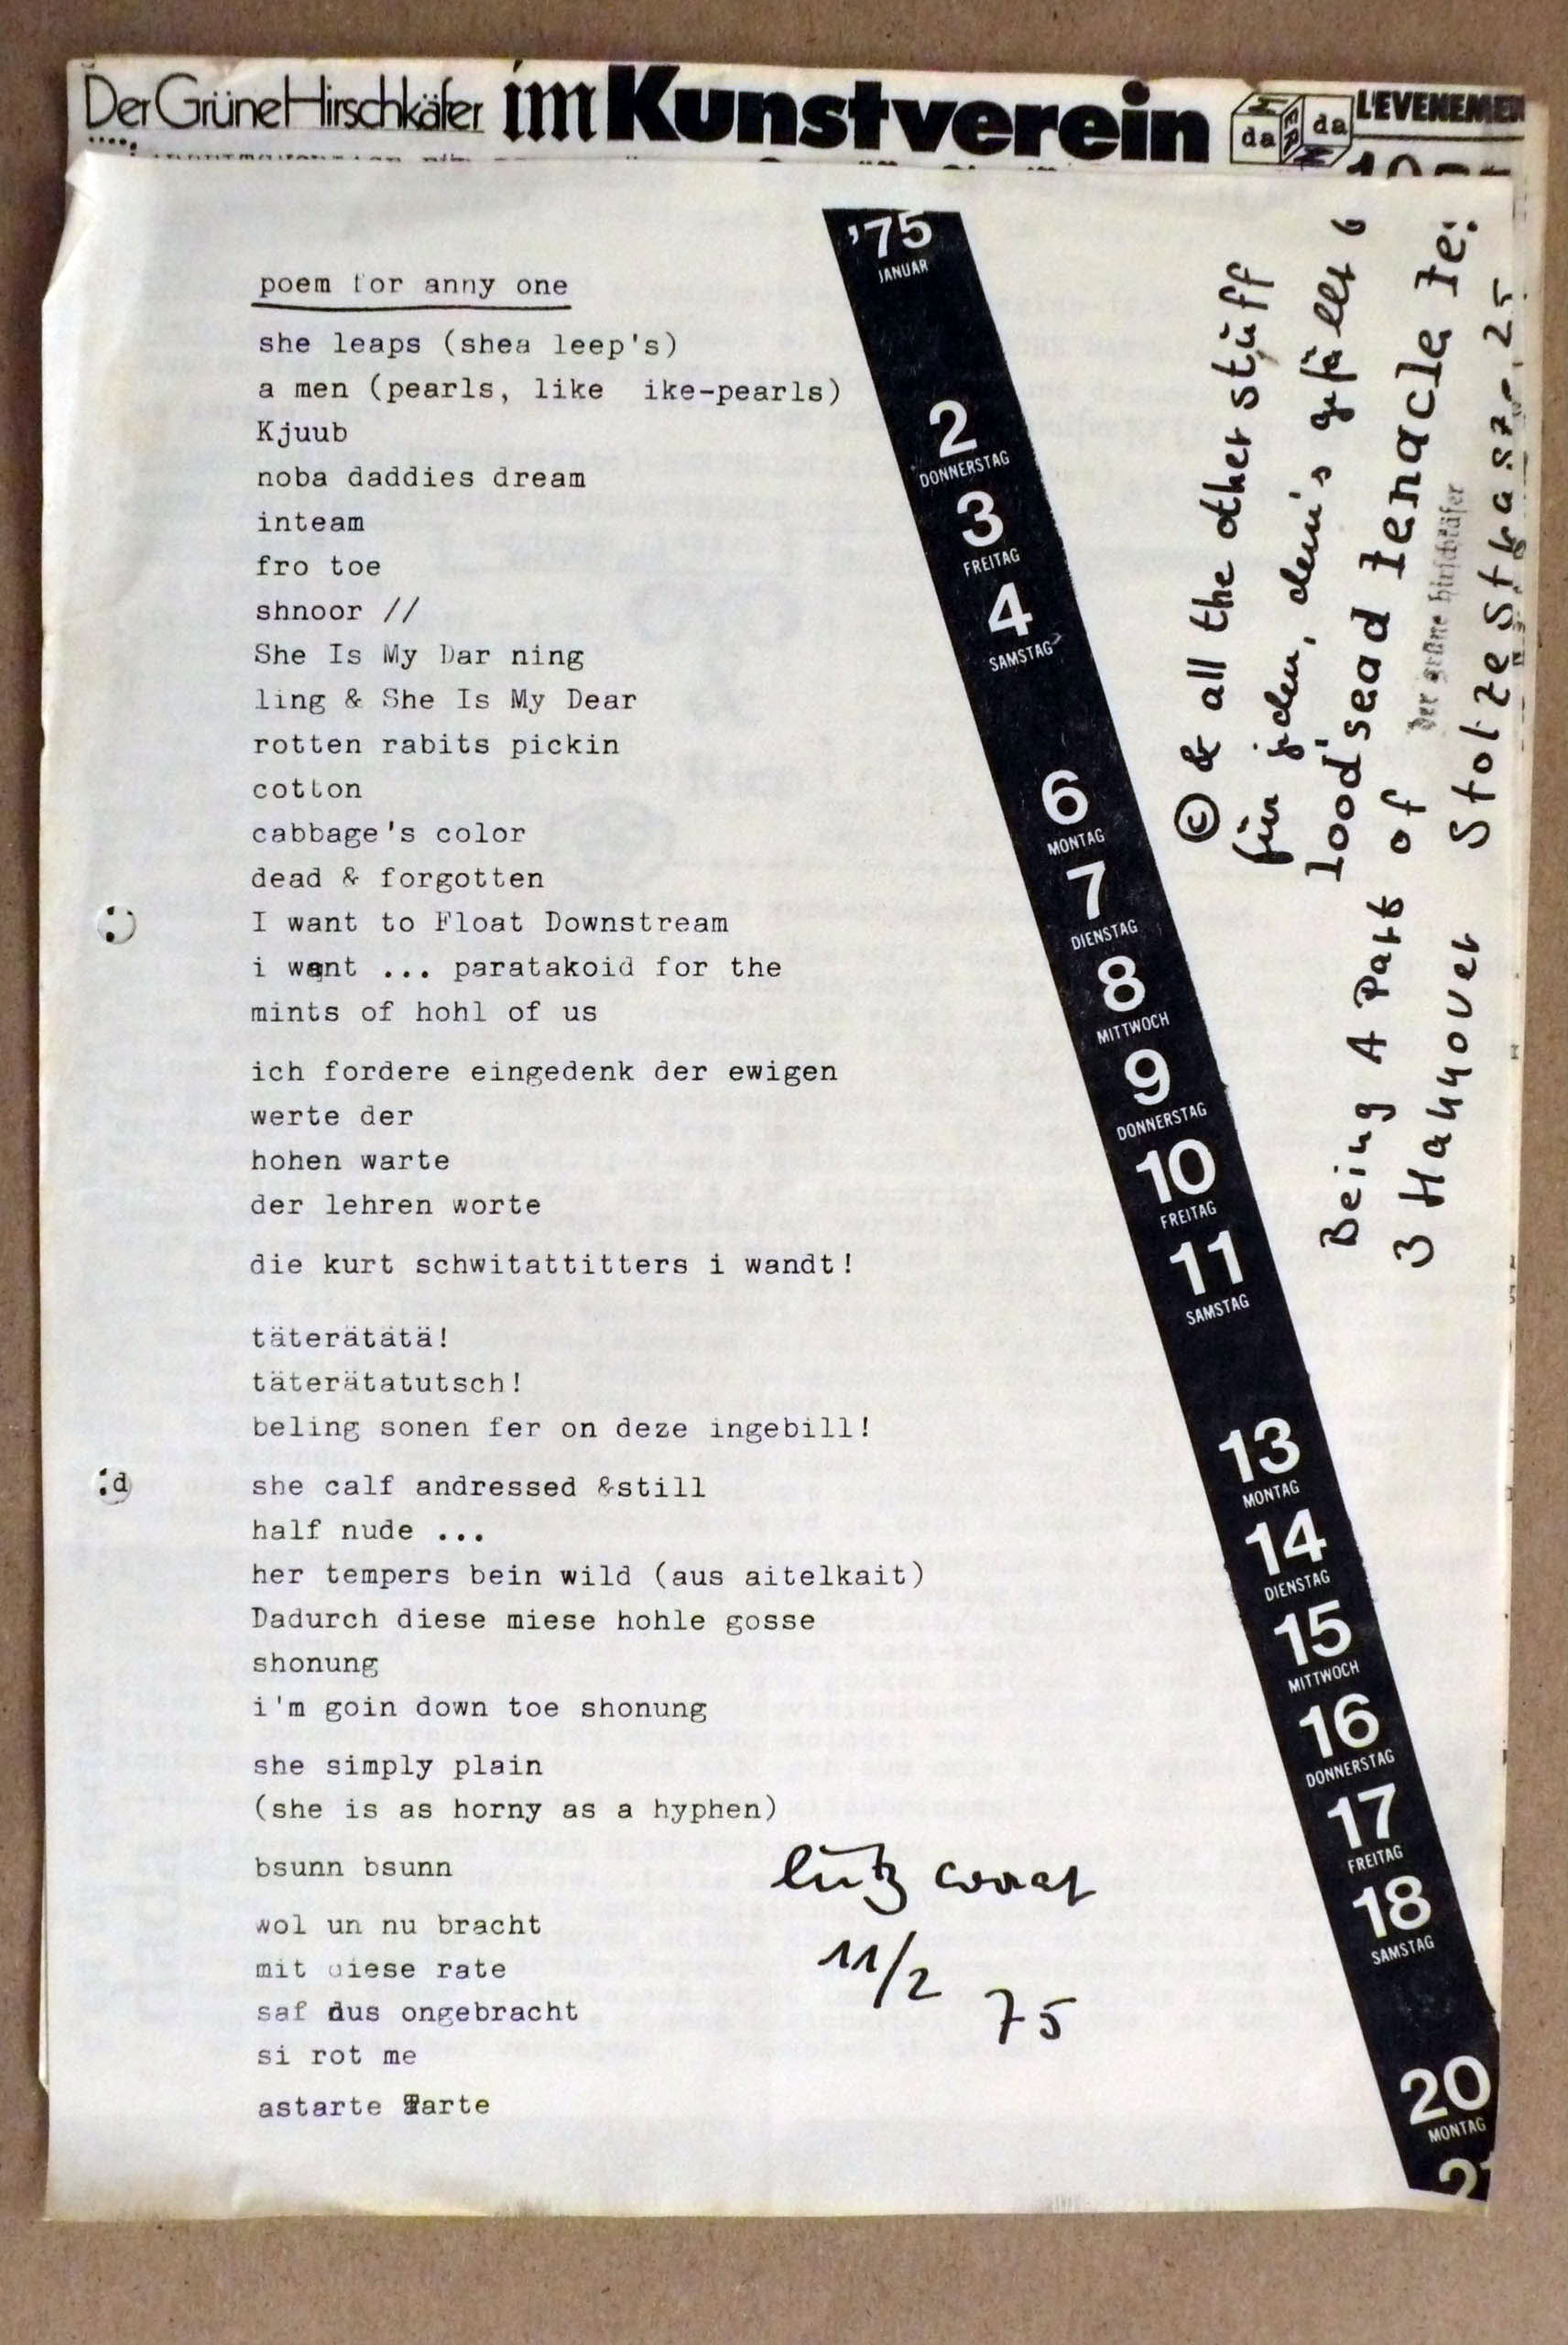 Der Grüne Hirschkäfer im Kunstverein
da da
L'EVENEMEN
poem for anny one
she leaps (shea leep's)
a men (pearls, like  ike-pearls)
Kjuub
noba daddies dream
inteam
fro toe
shnoor //
She Is My Dar ning
ling & She Is My Dear
rotten rabits pickin
cotton
cabbage's color
dead & forgotten
I want to Float Downstream
i want ... paratakoid for the
mints of hohl of us
ich fordere eingedenk der ewigen
werte der
hohen warte
der lehren worte
die kurt schwitattitters i wandt!
täterätätä!
täterätatutsch!
beling sonen fer on deze ingebill!
she calf andressed &still
half nude ...
her tempers bein wild (aus aitelkait)
Dadurch diese miese hohle gosse
shonung
i'm goin down toe shonung
she simply plain
(she is as horny as a hyphen)
bsunn bsunn
wol un nu bracht
mit diese rate
saf dus ongebracht
si rot me
astarte Tarte
:d
'75
JANUAR
2
DONNERSTAG
3
FREITAG
4
SAMSTAG
6
MONTAG
7
DIENSTAG
8
MITTWOCH
9
DONNERSTAG
10
FREITAG
11
SAMSTAG
13
MONTAG
14
DIENSTAG
15
MITTWOCH
16
DONNERSTAG
17
FREITAG
18
SAMSTAG
20
MONTAG
© & all the other stuff
für jeden, dem's gefällt
lood'sead tenacle
Being A Part of
der grüne hirschkäfer
3 Hannover Stolzestrasze 25
11/2
75